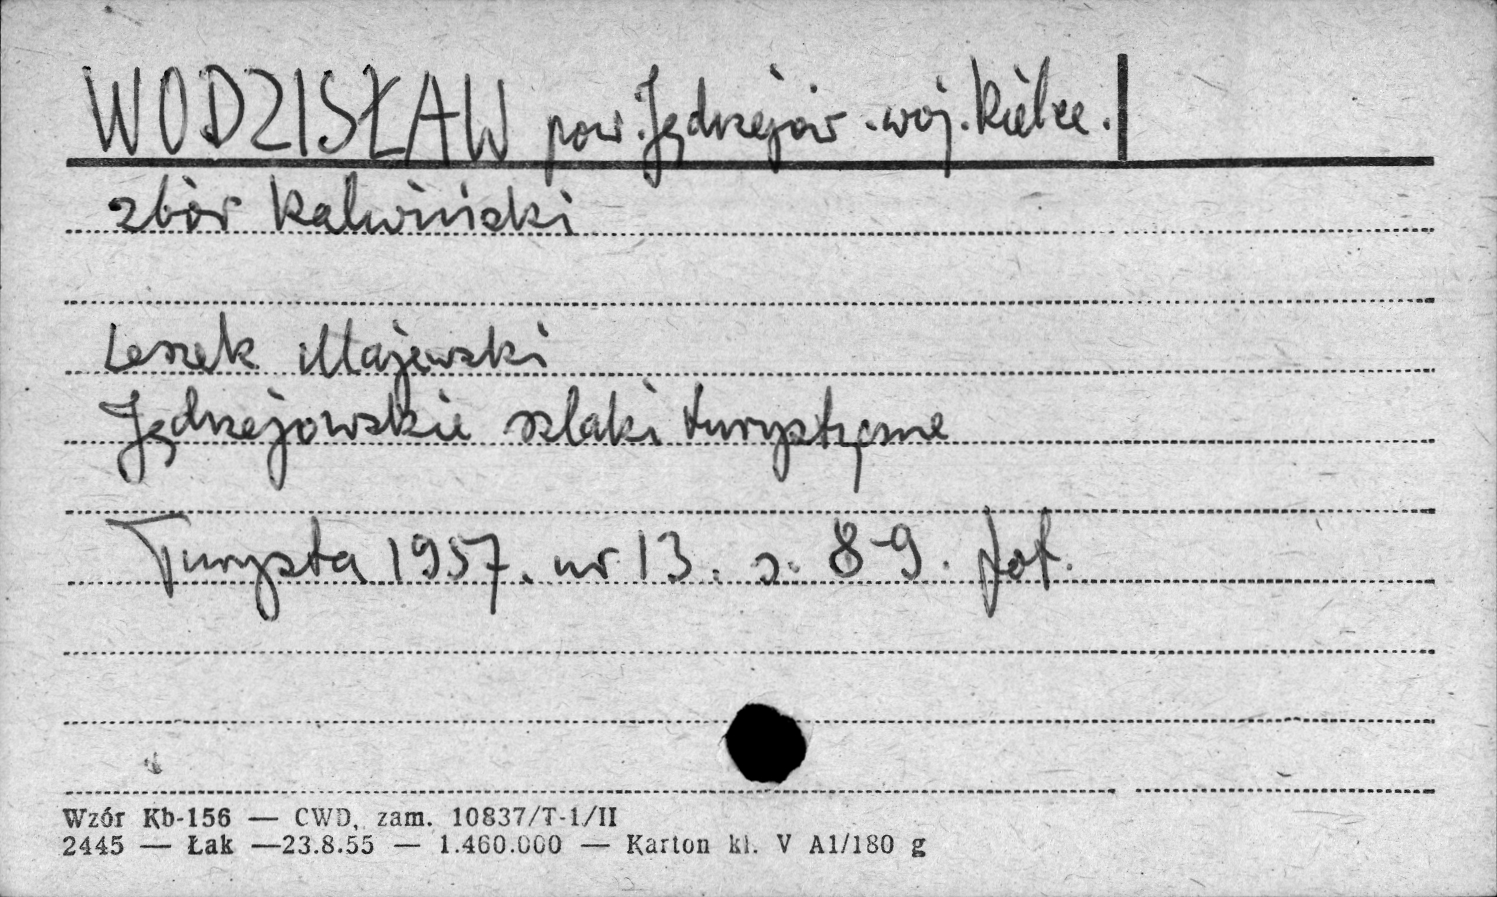 WODZISŁAW pow. Jędrzejów. woj. Kielce.
zbór kalwiński
Leszek Majewski
Jędrzejowskie szlaki turystyczne
Turysta 1957. nr 13. s. 8-9. fot.
Wzór Kb-156 — CWD, zam. 10837/T-1/II
2445 — Łak —23.8.55 — 1.460.000 — Karton kl. V A1/180 g